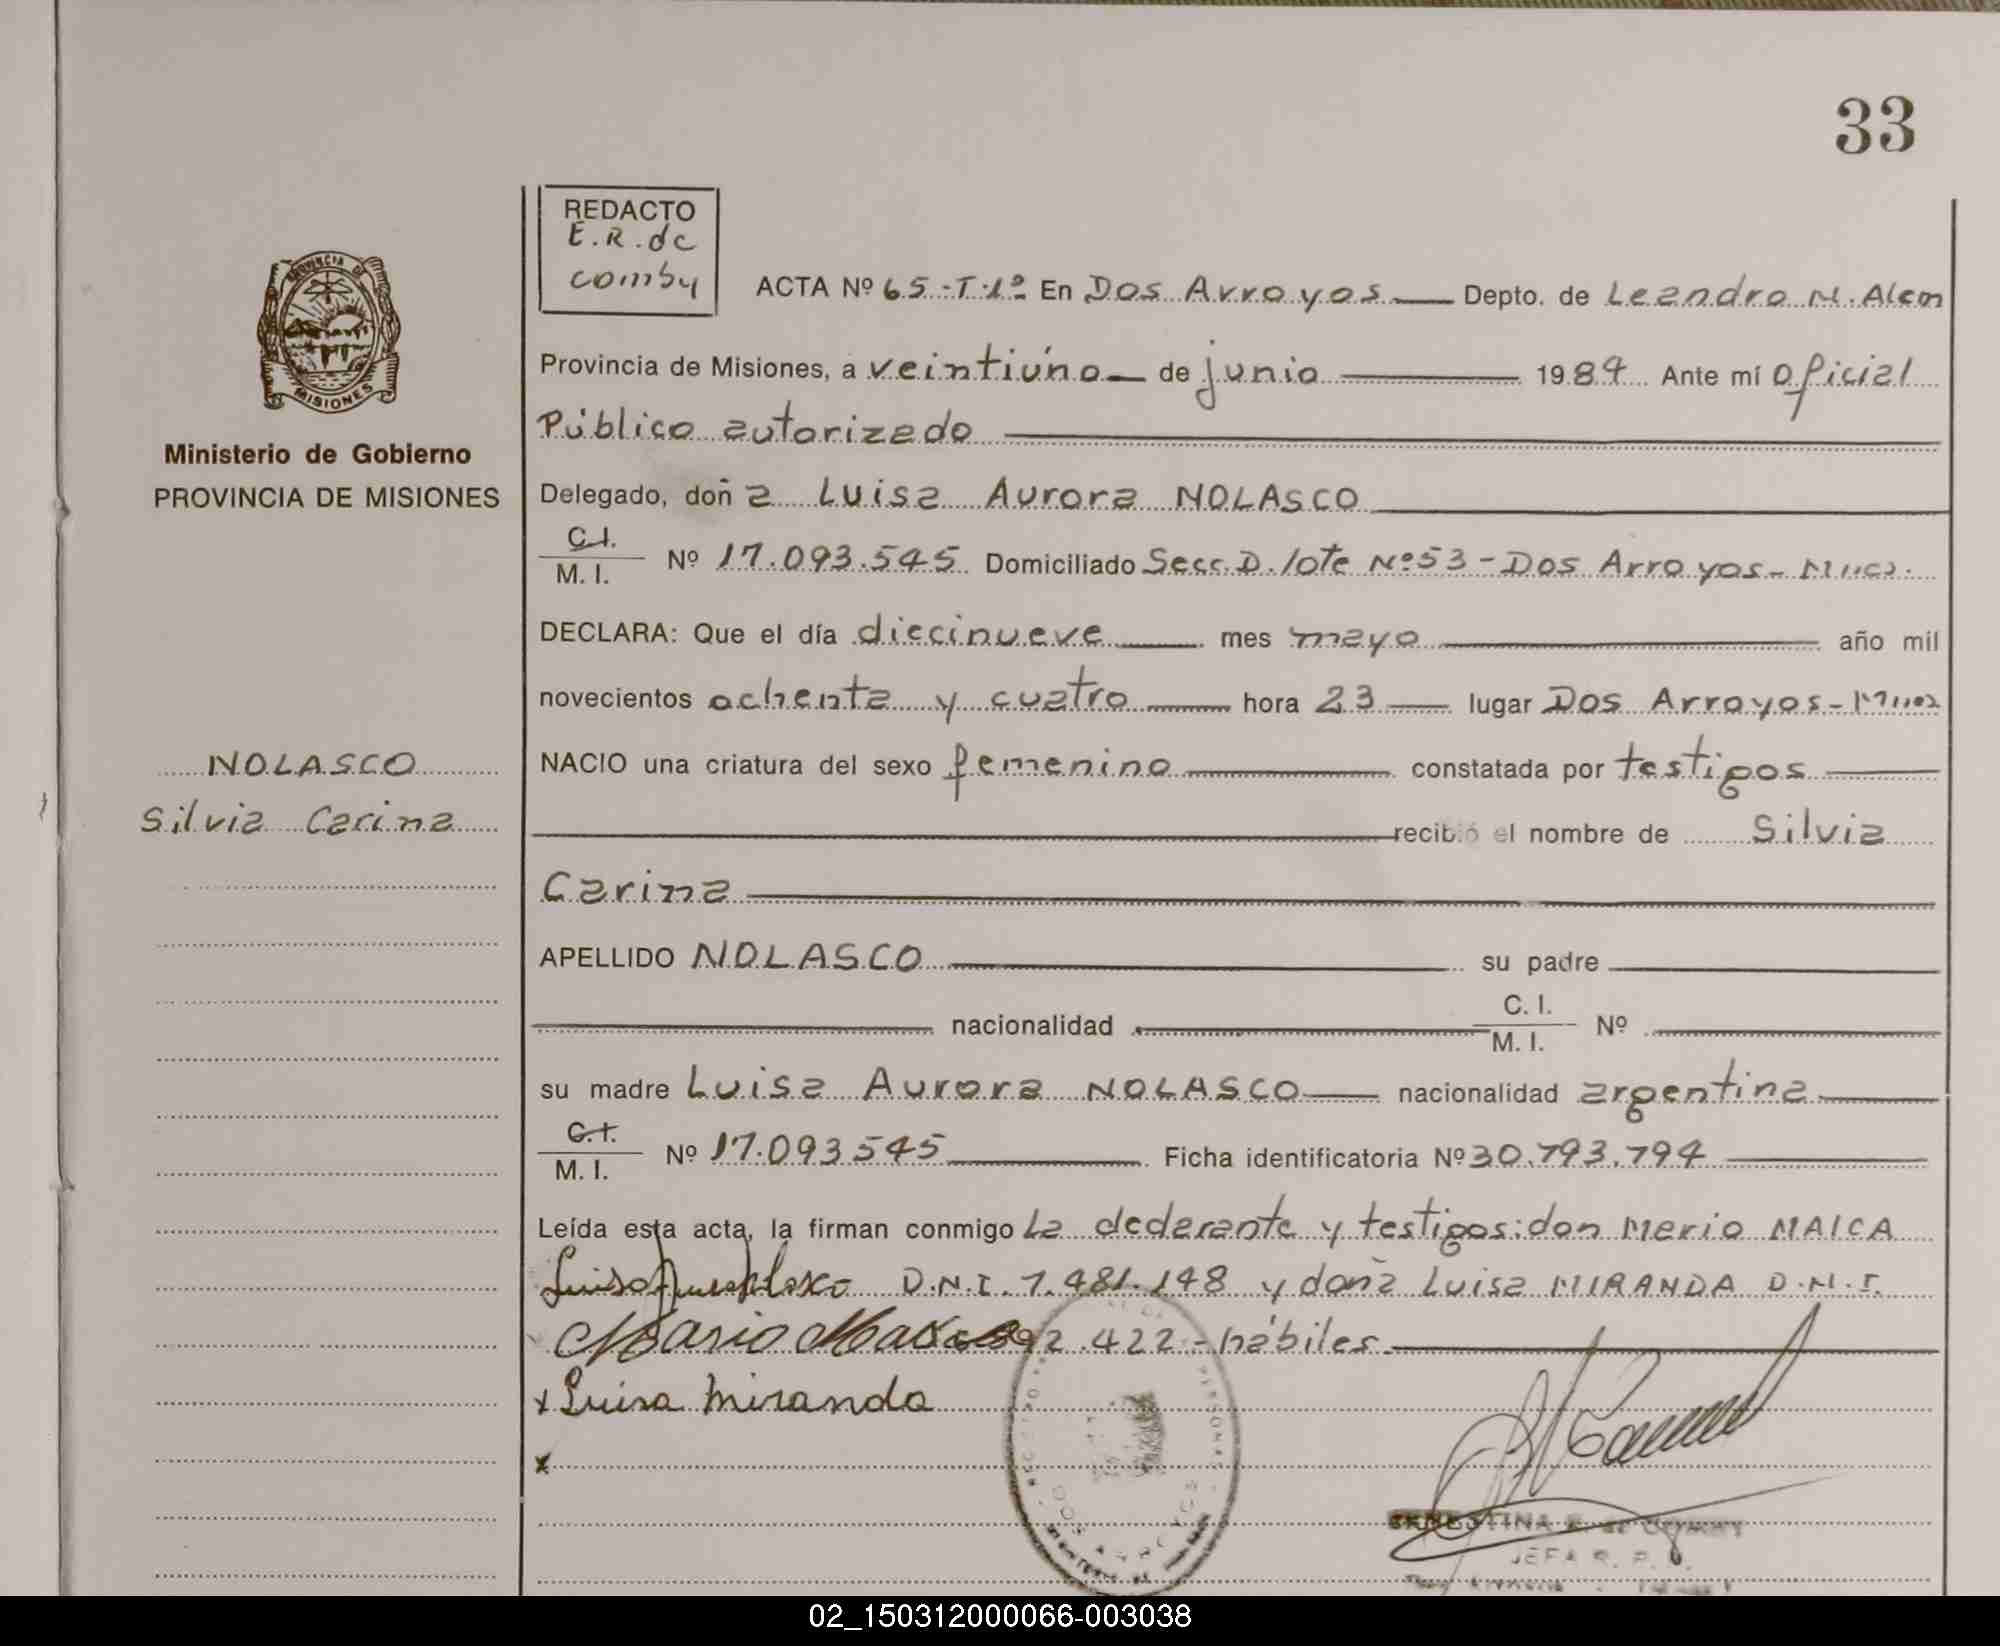 33
REDACTO
E.R.de
comby
PROVINCIA DE
MISIONES
Ministerio de Gobierno
PROVINCIA DE MISIONES
ACTA Nº 65-T.1º En Dos Arroyos Depto. de Leandro N. Alem
Provincia de Misiones, a veintiúno de junio 1984 Ante mí oficial
Público autorizado
Delegado, doña Luisa Aurora NOLASCO
C.I.
M. I. Nº 17.093.545 Domiciliado Secc. D. lote Nº53 - Dos Arroyos -
DECLARA: Que el día diecinueve mes mayo año mil
novecientos ochenta y cuatro hora 23 lugar Dos Arroyos -
NACIO una criatura del sexo femenino constatada por testigos
recibió el nombre de Silvia
Carina
NOLASCO
Silvia Carina
APELLIDO NOLASCO su padre
nacionalidad C. I.
M. I. Nº
su madre Luisa Aurora NOLASCO nacionalidad argentina
C.I.
M. I. Nº 17.093.545 Ficha identificatoria Nº 30.793.794
Leída esta acta, la firman conmigo La declarante y testigos: don Mario MAICA
D.N.I. 7.481.148 y doña Luisa MIRANDA D.N.I.
Mario 92.422 - hábiles.
x Luisa Miranda
x
DOS ARROYOS
ERNESTINA R. de
JEFA R. P.
02_150312000066-003038